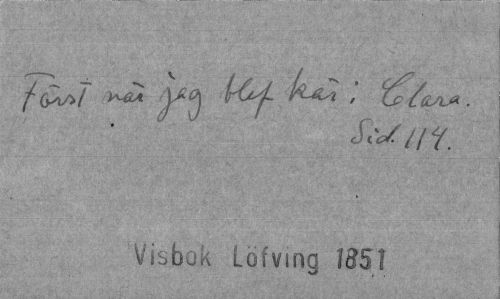 Först när jag blef kär i Clara.
Sid. 114.
Visbok Löfving 1851